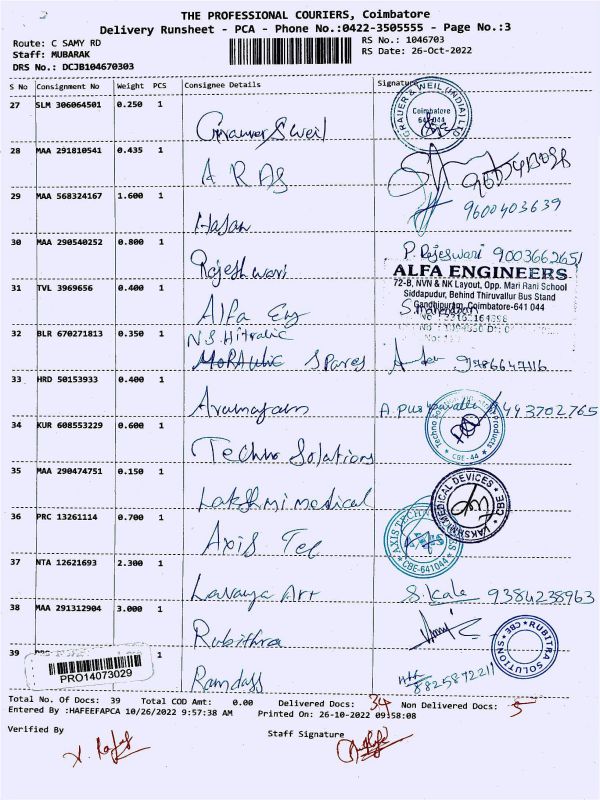 THE PROFESSIONAL COURIERS, Coimbatore
Delivery Runsheet - PCA - Phone No.:0422-3505555 - Page No.:3
Route: C SAMY RD
RS No.: 1046703
Staff: MUBARAK
RS Date: 26-Oct-2022
DRS No.: DCJB104670303
S No Consignment No Weight PCS Consignee Details Signature
27 SLM 306064501 0.250 1
Grauer & Weil
GRAUER & WEIL (INDIA) LTD
Coimbatore
641 044
28 MAA 291810541 0.435 1
A R AS
29 MAA 568324167 1.600 1
Hasan
9600403639
30 MAA 290540252 0.800 1
Rajeshwari
P. Rajeswari 9003662651
31 TVL 3969656 0.400 1
Alfa Eng
ALFA ENGINEERS
72-B, NVN & NK Layout, Opp. Mari Rani School
Siddapudur, Behind Thiruvallur Bus Stand
Gandhipuram, Coimbatore-641 044
32 BLR 670271813 0.350 1
N.S. Hitralic
Spares
33 HRD 50153933 0.400 1
34 KUR 608553229 0.600 1
Techno Solutions
CBE-44
35 MAA 290474751 0.150 1
Lakshmi medical
LAKSHMI MEDICAL DEVICES * CBE *
36 PRC 13261114 0.700 1
Axis Tec
CBE-641044
37 NTA 12621693 2.300 1
Lavanya Art
S. Kala 9384238963
38 MAA 291312904 3.000 1
Rubithra
RUBITRA SOLUTIONS * CBE *
39
PRO14073029
Ramdass
8825872211
Total No. Of Docs: 39 Total COD Amt: 0.00 Delivered Docs: 34 Non Delivered Docs: 5
Entered By :HAFEEFAPCA 10/26/2022 9:57:38 AM Printed On: 26-10-2022 09:58:08
Verified By
Staff Signature